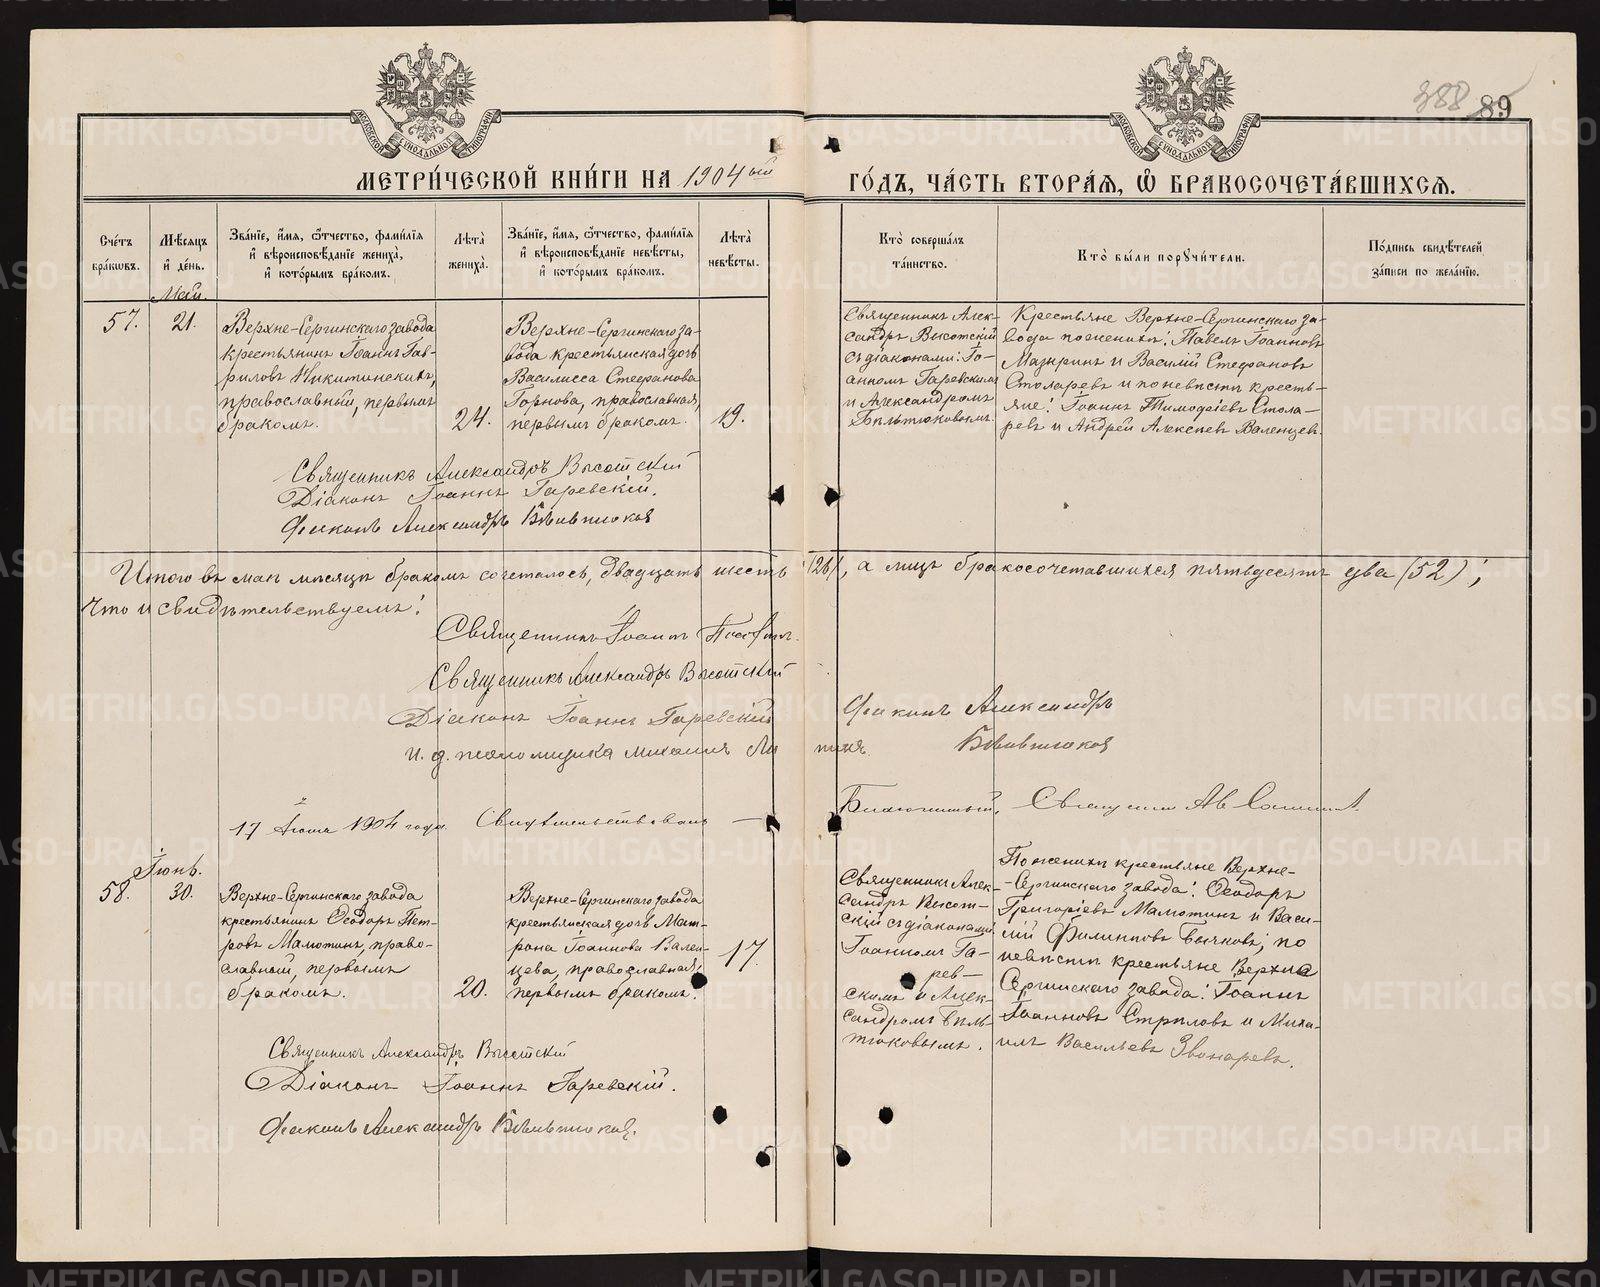 388 89
МОСКОВСКОЙ СУНОДАЛЬНОЙ ТИПОГРАФІИ
МОСКОВСКОЙ СУНОДАЛЬНОЙ ТИПОГРАФІИ
МЕТРИ́ЧЕСКОЙ КНИ́ГИ НА 1904ый
ГО́ДЪ, ЧА́СТЬ ВТОРА́Я, Ѽ БРАКОСОЧЕТА́ВШИХСЯ.
Сче́тъ
бра́кωвъ.
Мѣ́сяцъ
и҆ де́нь.
Зва́нїе, и҆́мя, ѻ҆́тчество, фами́лїя
и҆ вѣроисповѣ́данїе жениха̀,
и҆ кото́рымъ бра́комъ.
Лѣта̀
жениха̀.
Зва́нїе, и҆́мя, ѻ҆́тчество, фами́лїя
и҆ вѣроисповѣ́данїе невѣ́сты,
и҆ кото́рымъ бра́комъ.
Лѣта̀
невѣ́сты.
Кто̀ соверша́лъ
та́инство.
Кто̀ бы́ли порꙋчи́тели.
По́дпись свидѣ́телей
за́писи по жела́нїю.
Май.
57.
21.
Верхне-Сергинскаго завода
крестьянинъ Іоаннъ Гав-
риловъ Никитинскихъ,
православный, первымъ
бракомъ.
24.
Верхне-Сергинскаго за-
вода крестьянская дочь
Василисса Стефанова
Горнова, православная,
первымъ бракомъ.
19.
Священникъ Алек-
сандръ Высотскій
съ діаконами: Іо-
анномъ Гаревскимъ
и Александромъ
Бѣльтюковымъ.
Крестьяне Верхне-Сергинскаго за-
вода по женихѣ: Павелъ Іоанновъ
Мазыринъ и Василій Стефановъ
Столаревъ и по невѣстѣ кресть-
яне: Іоаннъ Тимофіевъ Стола-
ревъ и Андрей Алексѣевъ Валенцевъ.
Священникъ Александръ Высотскій
Діаконъ Іоаннъ Гаревскій.
Діаконъ Александръ Бѣльтюковъ
Итого въ маѣ мѣсяцѣ бракомъ сочеталось, двадцать шесть (26), а лицъ бракосочетавшихся пятьдесятъ два (52);
Что и свидѣтельствуемъ:
Священникъ Іоаннъ
Священникъ Александръ Высотскій
Діаконъ Іоаннъ Гаревскій
и. д. псаломщика Михаилъ
Діаконъ Александръ
Бѣльтюковъ
17 Іюня 1904 года. Свидѣтельствовалъ —
Благочинный, Священникъ
Іюнь.
58.
30.
Верхне-Сергинскаго завода
крестьянинъ Ѳеодоръ Пет-
ровъ Мамотинъ, право-
славный, первымъ
бракомъ.
20.
Верхне-Сергинскаго завода
крестьянская дочь Мат-
рона Іоаннова Вален-
цева, православная,
первымъ бракомъ.
17.
Священникъ Алек-
сандръ Высот-
скій съ діаконами
Іоанномъ Га-
рев-
скимъ и Алек-
сандромъ Бѣль-
тюковымъ.
По женихѣ крестьяне Верхне-
-Сергинскаго завода: Ѳеодоръ
Григоріевъ Мамотинъ и Васи-
лій Филипповъ Бычковъ; по
невѣстѣ крестьяне Верхне
Сергинскаго завода: Іоаннъ
Іоанновъ Стрѣловъ и Миха-
илъ Васильевъ Звонаревъ.
Священникъ Александръ Высотскій
Діаконъ Іоаннъ Гаревскій.
Діаконъ Александръ Бѣльтюковъ.
METRIKI.GASO-URAL.RU